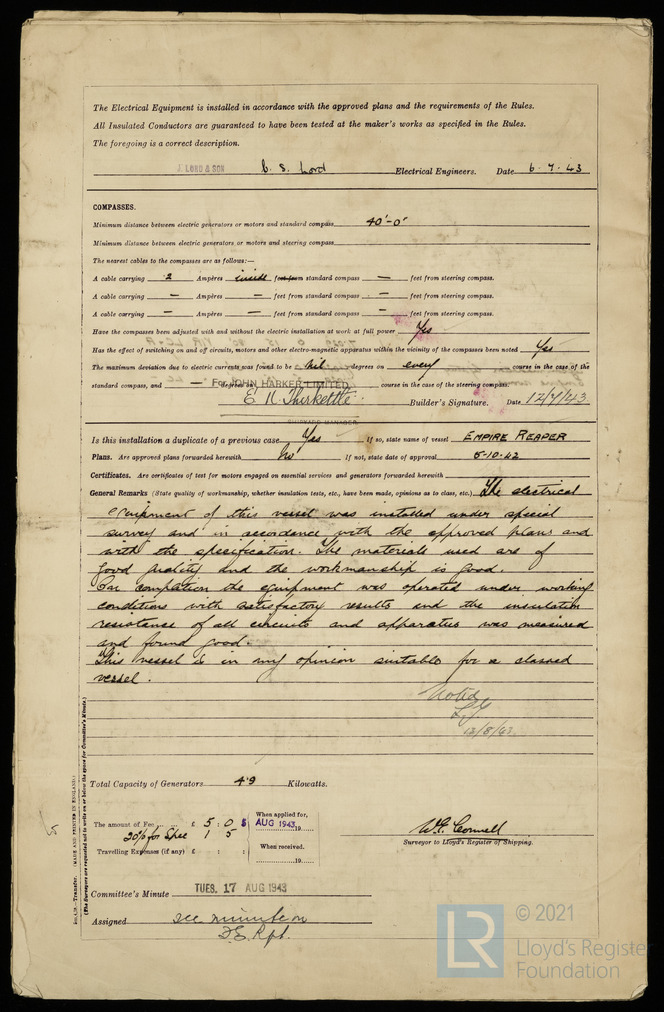 The Electrical Equipment is installed in accordance with the approved plans and the requirements of the Rules.
All Insulated Conductors are guaranteed to have been tested at the maker's works as specified in the Rules.
The foregoing is a correct description.
J. LORD & SON C. S. Lord Electrical Engineers. Date 6-7-43
COMPASSES.
Minimum distance between electric generators or motors and standard compass 40'-0"
Minimum distance between electric generators or motors and steering compass
The nearest cables to the compasses are as follows:—
A cable carrying 2 Ampères inside feet from standard compass — feet from steering compass.
A cable carrying — Ampères — feet from standard compass — feet from steering compass.
A cable carrying — Ampères — feet from standard compass — feet from steering compass.
Have the compasses been adjusted with and without the electric installation at work at full power Yes
Has the effect of switching on and off circuits, motors and other electro-magnetic apparatus within the vicinity of the compasses been noted Yes
The maximum deviation due to electric currents was found to be Nil degrees on every course in the case of the
standard compass, and — degrees course in the case of the steering compass.
For JOHN HARKER LIMITED
E N Thirkettle Builder's Signature. Date 12/7/43
SHIPYARD MANAGER
Is this installation a duplicate of a previous case Yes If so, state name of vessel EMPIRE REAPER
Plans. Are approved plans forwarded herewith No If not, state date of approval 5-10-42
Certificates. Are certificates of test for motors engaged on essential services and generators forwarded herewith
General Remarks (State quality of workmanship, whether insulation tests, etc., have been made, opinions as to class, etc.) The electrical
equipment of this vessel was installed under special
survey and in accordance with the approved plans and
with the specification. The materials used are of
good quality and the workmanship is good.
On completion the equipment was operated under working
conditions with satisfactory results and the insulation
resistance of all circuits and apparatus was measured
and found good.
This vessel is in my opinion suitable for a classed
vessel.
Noted
12/8/43
Total Capacity of Generators 4.9 Kilowatts.
The amount of Fee £ 5 : 0 : When applied for,
AUG 1943 19
20% for Spec 1 5
Travelling Expenses (if any) £ : : When received,
19
Surveyor to Lloyd's Register of Shipping.
Committee's Minute TUES. 17 AUG 1943
Assigned see minute on
F.E. Rpt.
Transfer. (MADE AND PRINTED IN ENGLAND.)
(The Surveyors are requested not to write on or below the space for Committee's Minute.)
LR © 2021
Lloyd's Register
Foundation